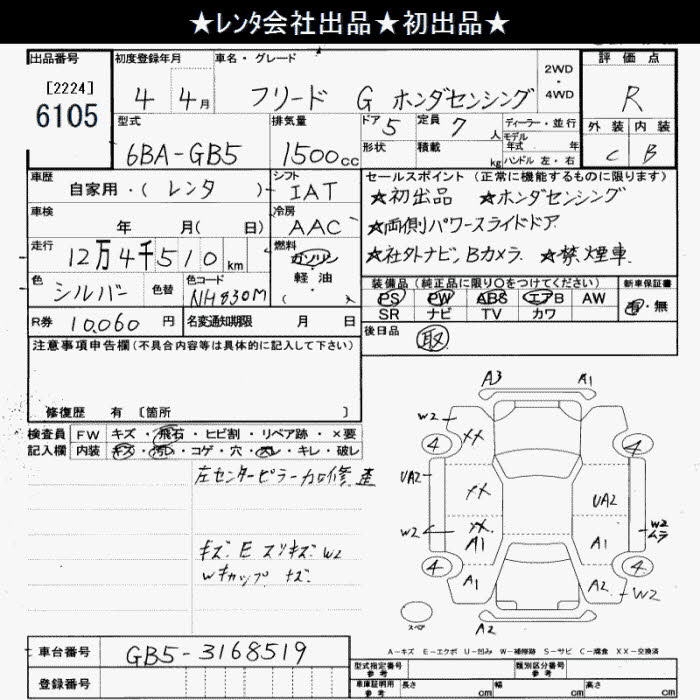 ★レンタ会社出品★初出品★
出品番号
[2224]
6105
初度登録年月
4 4月
車名・グレード
フリード G ホンダセンシング
2WD
・
4WD
評価点
R
外装 内装
C B
型式
6BA-GB5
排気量
1500cc
ドア 5
形状
定員 7人
積載 kg
ディーラー・並行
モデル
年式 年
ハンドル 左・右
車歴
自家用・(レンタ)
シフト
IAT
車検
年 月( 日)
冷房
AAC
走行
12万4千510 km
燃料
ガソリン
軽・油
・
( )
色
シルバー
色替
色コード
NH830M
R券 10,060 円
名変通知期限 月 日
セールスポイント (正常に機能するものに限ります)
★初出品 ★ホンダセンシング
★両側パワースライドドア
★社外ナビ、Bカメラ ★禁煙車
装備品(純正品に限り○をつけてください)
PS PW ABS エアB AW
SR ナビ TV カワ
新車保証書
有・無
後日品
取
注意事項申告欄(不具合内容等は具体的に記入して下さい)
修復歴 有 [箇所 ]
検査員
記入欄
FW キズ・飛石・ヒビ割・リペア跡・×要
内装 キズ・汚レ・コゲ・穴・スレ・キレ・破レ
左センターピラー加修歪
キズ E スリキズ W2
Wキャップ キズ
A3 A1
W2 XX
4 4
UA2 XX UA2
W2 XX
A1 A1 W2
ムラ
4 A1 A2 4
W2
スペア
A2
A-キズ E-エクボ U-凹み W-補修跡 S-サビ C-腐食 XX-交換済
車台番号 GB5-3168519
登録番号
型式指定番号
参考
類別区分番号
参考
車庫証明用
参考
長さ cm 幅 cm 高さ cm